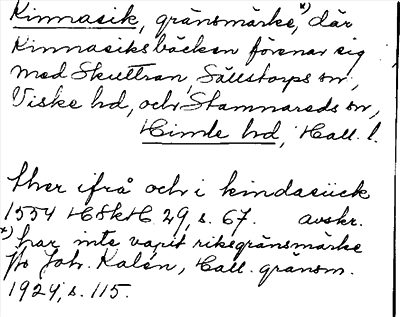 Kinnasik, gränsmärke,*) där
Kinnasiksbäcken förenar sig
med Skuttran, Sällstorps sn,
Viske hd, och Stamnareds sn,
Himle hd, Hall. l.
ther ifrå och i kindasiick
1554 HSkH 29, s. 67. avskr.
*) har inte varit riksgränsmärke
Joh. Kalén, Hall. gränsm.
1924, s. 115.